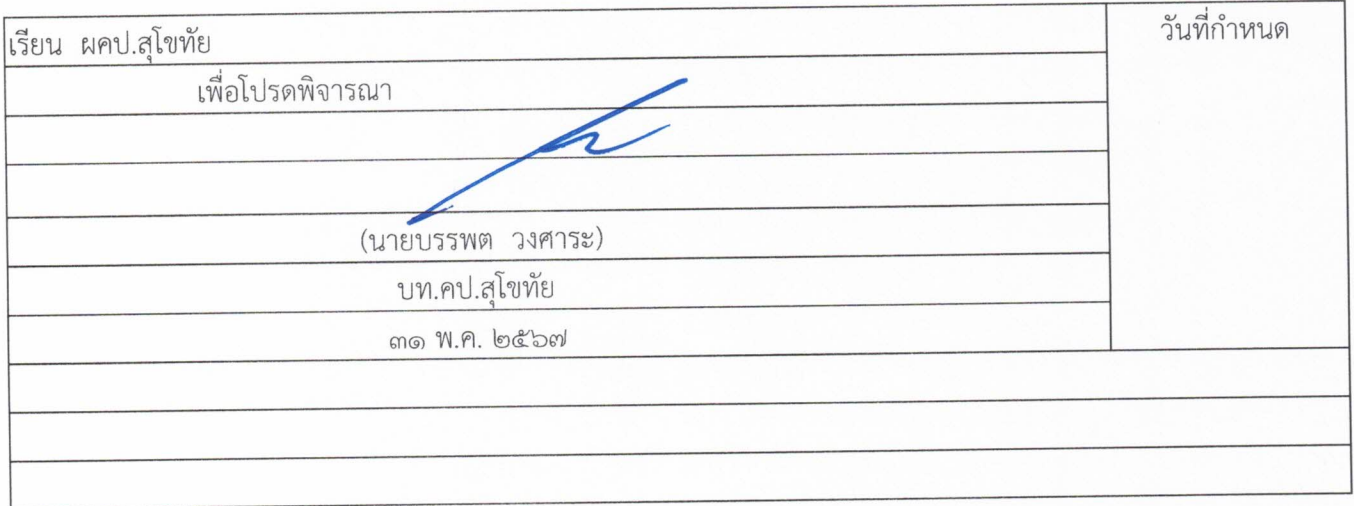 เรียน ผคป.สุโขทัย
วันที่กำหนด
เพื่อโปรดพิจารณา
(นายบรรพต วงศาระ)
บท.คป.สุโขทัย
๓๑ พ.ค. ๒๕๖๗